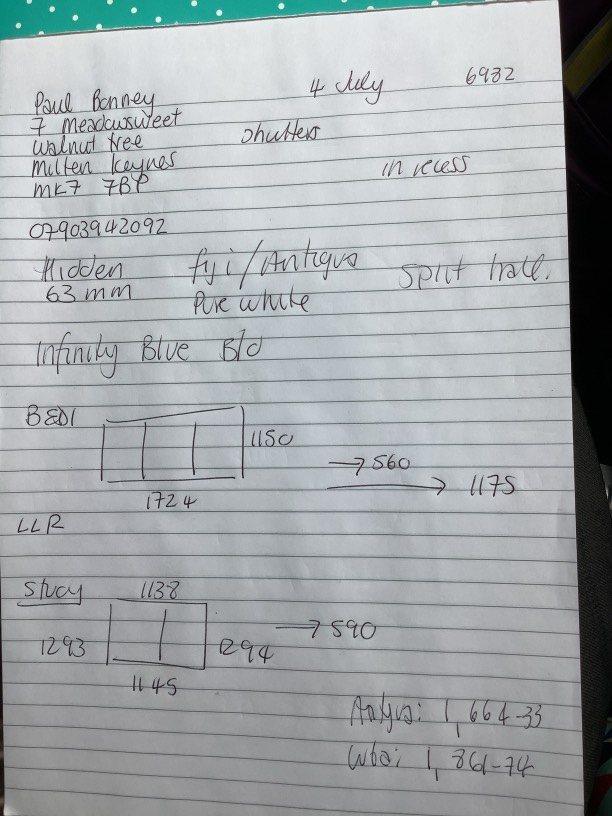 4 July 6982
Paul Bonney
7 Meadowsweet
Walnut tree
Milten Keynes
MK7 7BP
Shutters
in recess
07903942092
Hidden fyi/Antigua Split tratl.
63 mm Pure white
Infinity Blue B/o
BED1
1150
→ 560
→ 1175
1724
LLR
Study 1138
1293 1294 → 590
1145
Antgua: 1,664-33
1,861-74